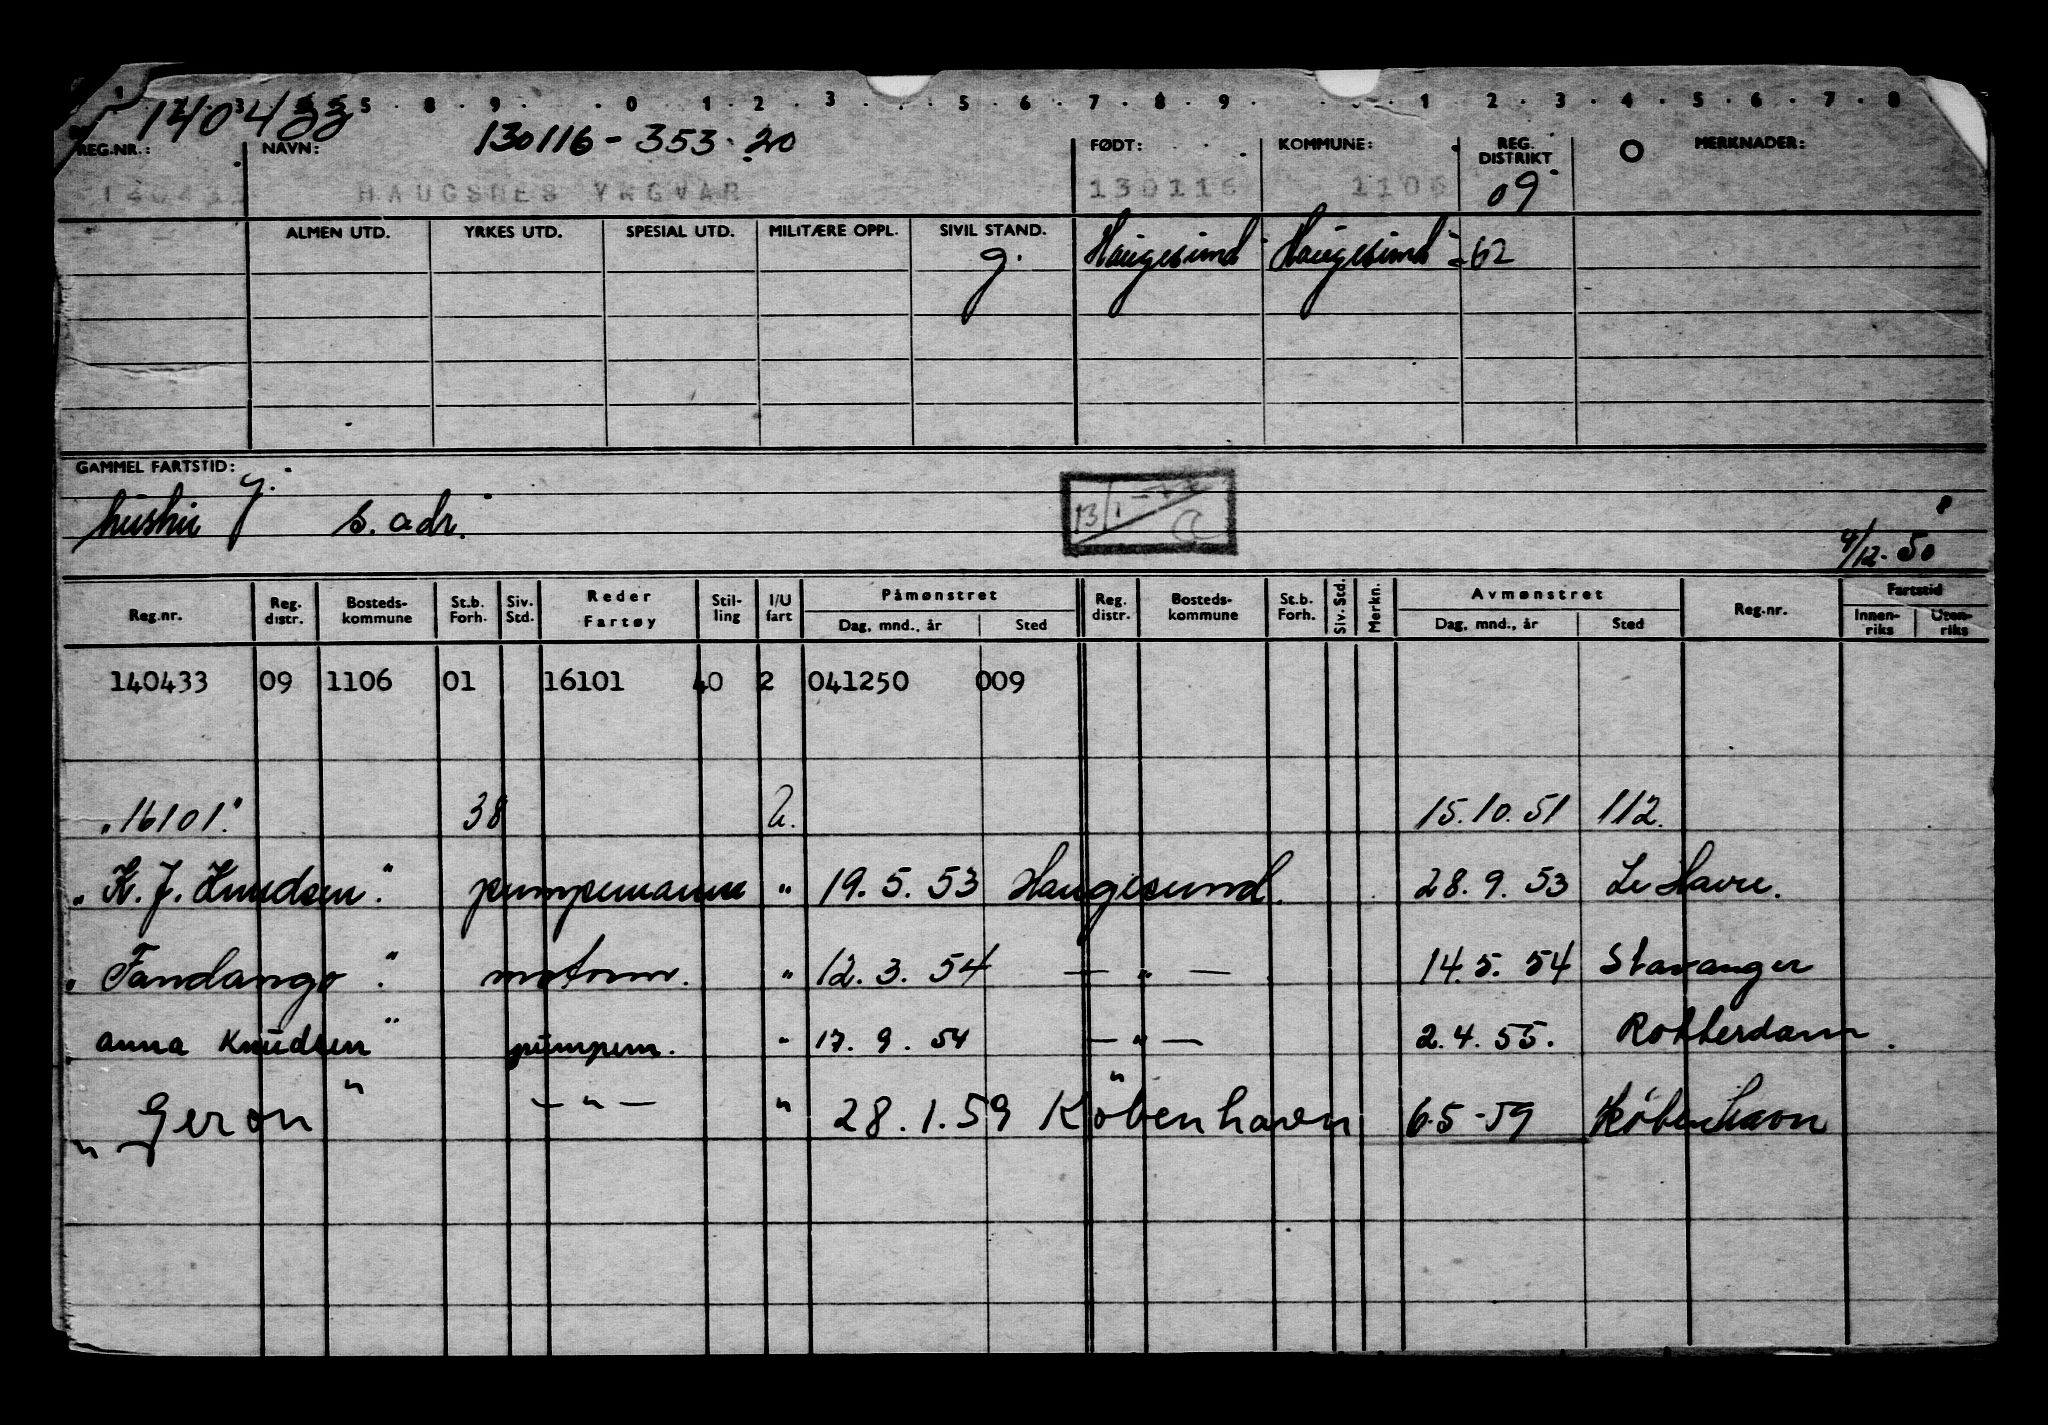 140433
130116 - 353.20
REG.NR.: NAVN: FØDT: KOMMUNE: REG. DISTRIKT MERKNADER:
HAUGSNES YNGVAR 130116 1106 09
ALMEN UTD. YRKES UTD. SPESIAL UTD. MILITÆRE OPPL. SIVIL STAND.
g. Haugesund Haugesund - 62
GAMMEL FARTSTID:
s. adr.
4/12. 50
Reg.nr. Reg. distr. Bosteds-kommune St.b. Forh. Siv. Std. Reder Fartøy Stil-ling I/U fart Påmønstret Dag, mnd., år Sted Reg. distr. Bosteds-kommune St.b. Forh. Siv. Std. Merkn. Avmønstret Dag, mnd., år Sted Reg.nr. Fartstid Innen-riks Uten-riks
140433 09 1106 01 16101 40 2 041250 009
"16101" 38 2. 15.10.51 112.
"K. J. Knudsen" pumpemann " 19.5.53 Haugesund. 28.9.53 Le Havre.
"Fandango" motorm. " 12.3.54 — " — 14.5.54 Stavanger
"Anna Knudsen" pumpem. " 17.9.54 — " — 2.4.55. Rotterdam.
"Geron" — " — " 28.1.59 København 6.5-59 København